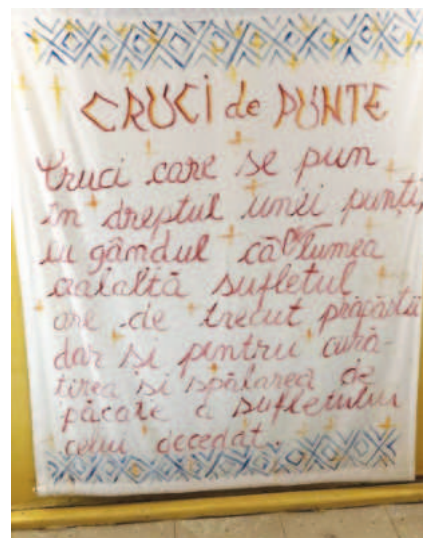 CRUCI de PUNTE
Cruci care se pun
în dreptul unei punți,
cu gândul că pe lumea
cealaltă sufletul
are de trecut prăpăstii
dar și pentru cură-
țirea și spălarea de
păcate a sufletului
celui decedat.